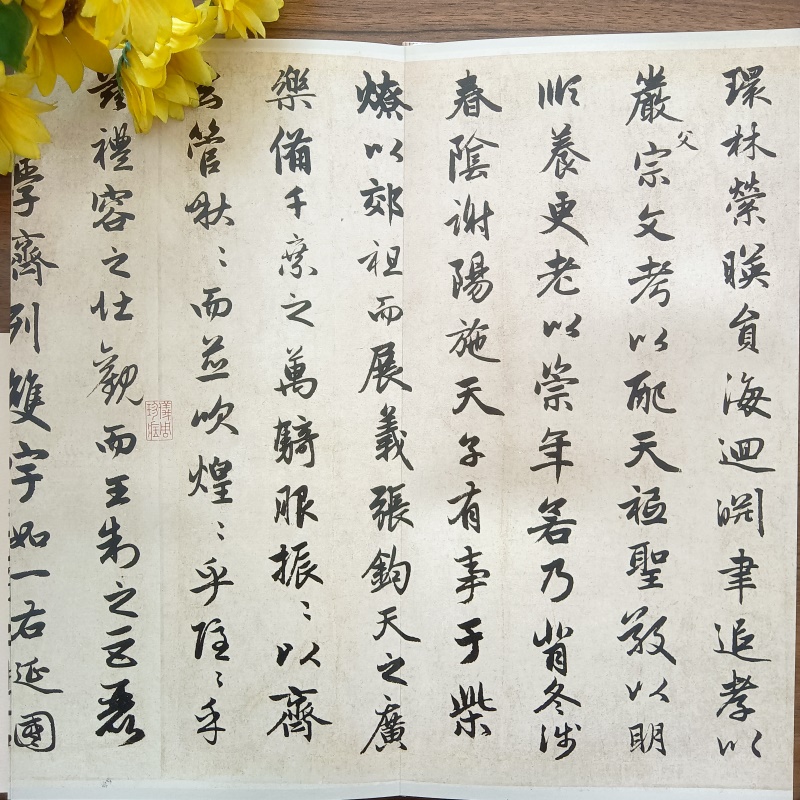 環林縈暎員海迴淵聿追孝以
嚴父宗文考以配天祗聖敬以明
順養更老以崇年若乃背冬涉
春陰謝陽施天子有事于柴
燎以郊祖而展義張鈞天之廣
樂備千乘之萬騎服振〻以齊
玄管啾〻而並吹煌〻乎隱〻乎
茲禮容之壯觀而王制之巨麗
學齊列雙宇如一右延國